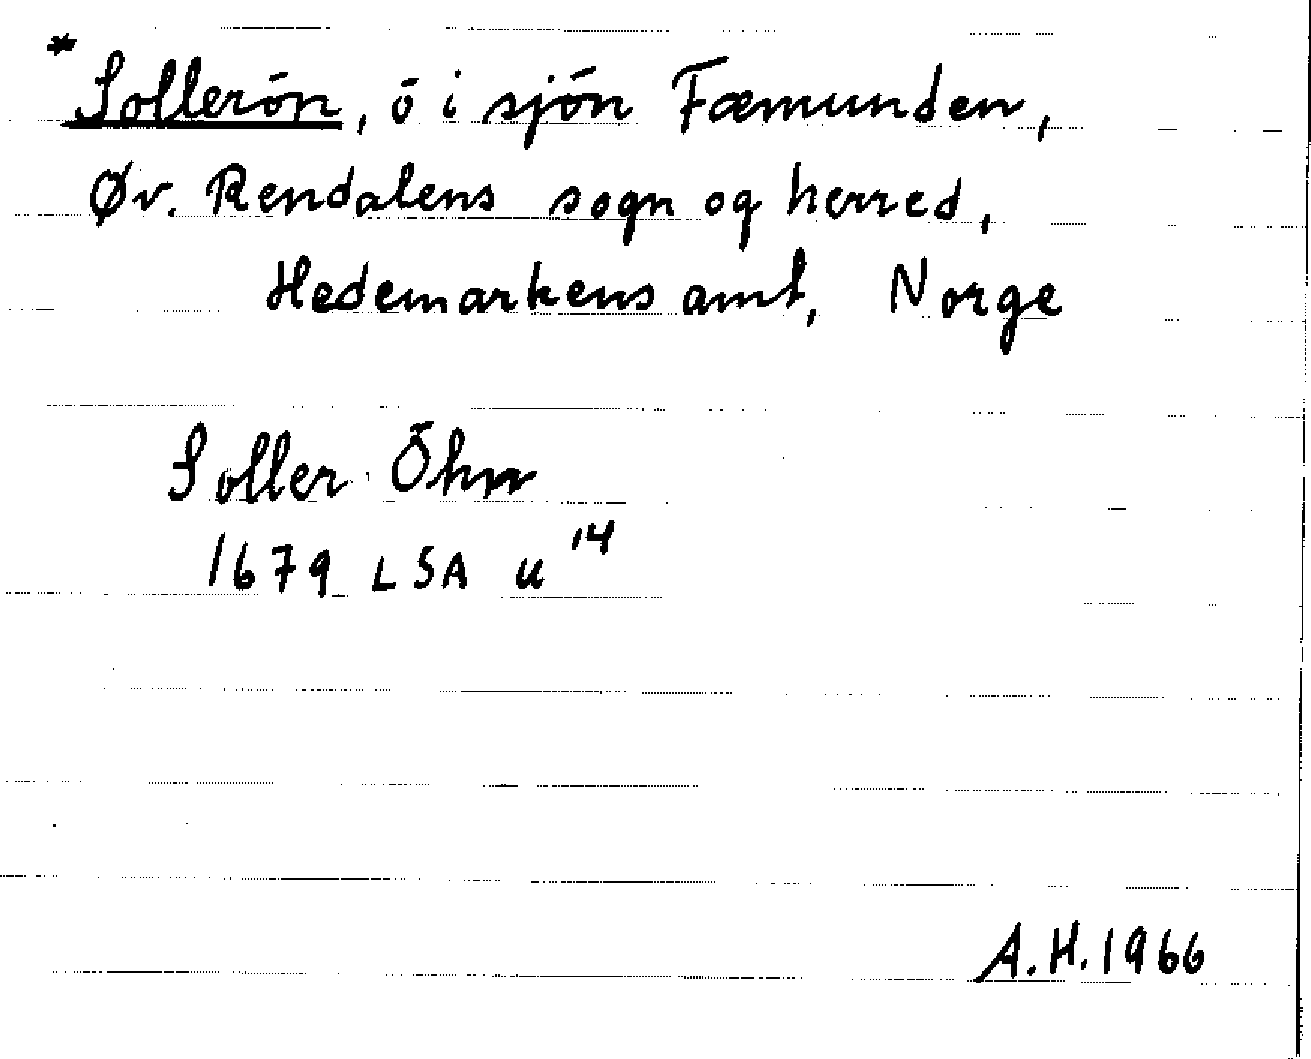 *Sollerön, ö i sjön Fæmunden,
Øv. Rendalens sogn og herred,
Hedemarkens amt, Norge
Soller Öhn
1679 LSA u 14
A.H. 1966